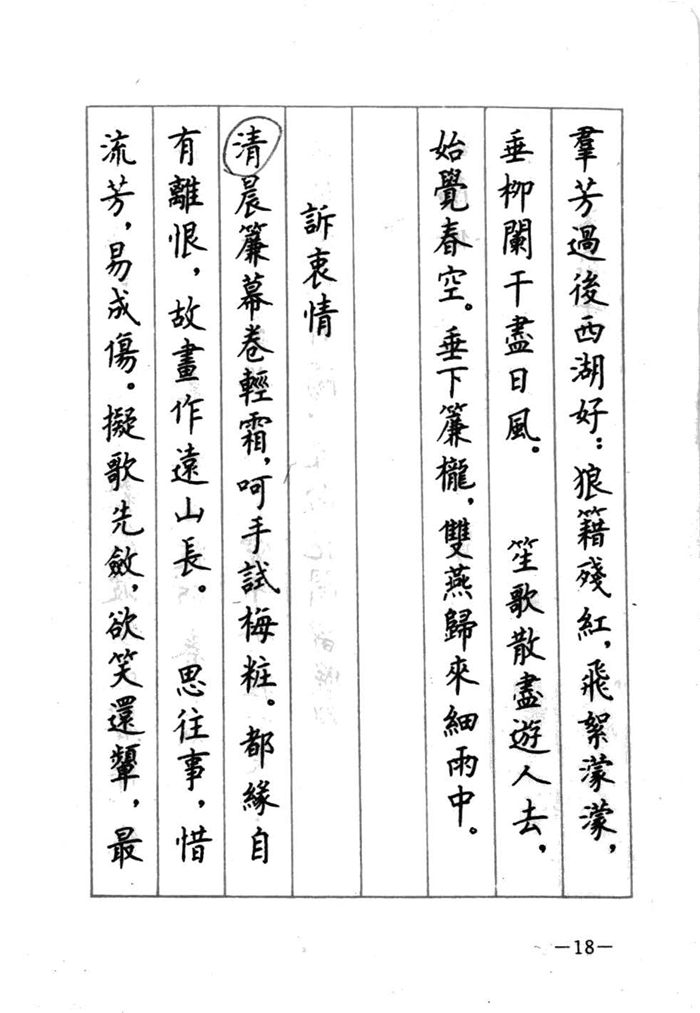 羣芳過後西湖好：狼籍殘紅，飛絮濛濛，
垂柳闌干盡日風。　笙歌散盡遊人去，
始覺春空。垂下簾櫳，雙燕歸來細雨中。
訴衷情
清晨簾幕卷輕霜，呵手試梅粧。都緣自
有離恨，故畫作遠山長。　思往事，惜
流芳，易成傷。擬歌先斂，欲笑還顰，最
—18—